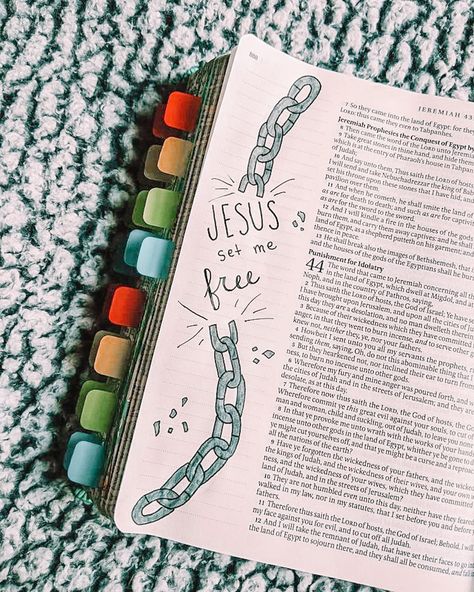 JESUS
set me
free
JEREMIAH 43
7 So they came into the land of Egypt: for
LORD: thus came they even to Tahpanhes.
Jeremiah Prophecies the Conquest of Egypt by
8 Then came the word of the LORD unto Jeremiah
9 Take great stones in thine hand, and hide them
which is at the entry of Pharaoh's house in Tahpanhes
of Judah;
10 And say unto them, Thus saith the LORD
I will send and take Nebuchadrezzar the king of
set his throne upon these stones that I have hid; and
pavilion over them.
11 And when he cometh, he shall smite the land
as are for death to death; and such as are for captivity
as are for the sword to the sword.
12 And I will kindle a fire in the houses of the gods
burn them, and carry them away captives: and he shall
land of Egypt, as a shepherd putteth on his garment; and
thence in peace.
13 He shall break also the images of Bethshemesh, that
and the houses of the gods of the Egyptians shall he
Punishment for Idolatry
44 The word that came to Jeremiah concerning all
in the land of Egypt, which dwell at Migdol, and
Noph, and in the country of Pathros, saying,
2 Thus saith the LORD of hosts, the God of Israel; Ye have
I have brought upon Jerusalem, and upon all the cities of
this day they are a desolation, and no man dwelleth
3 Because of their wickedness which they have committed
anger, in that they went to burn incense, and to serve
knew not, neither they, ye, nor your fathers.
4 Howbeit I sent unto you all my servants the prophets,
sending them, saying, Oh, do not this abominable thing
5 But they hearkened not, nor inclined their ear to turn
ness, to burn no incense unto other gods.
6 Wherefore my fury and mine anger was poured forth, and
the cities of Judah and in the streets of Jerusalem; and they
desolate, as at this day.
7 Therefore now thus saith the LORD, the God of hosts, the God
Wherefore commit ye this great evil against your souls, to cut
man and woman, child and suckling, out of Judah, to leave you
8 In that ye provoke me unto wrath with the works of your hands,
incense unto other gods in the land of Egypt, whither ye be gone
ye might cut yourselves off, and that ye might be a curse and a
all the nations of the earth?
9 Have ye forgotten the wickedness of your fathers, and the
the kings of Judah, and the wickedness of their wives, and your own
and the wickedness of your wives, which they have committed
land of Judah, and in the streets of Jerusalem?
10 They are not humbled even unto this day, neither have they
walked in my law, nor in my statutes, that I set before you and before
fathers.
11 Therefore thus saith the LORD of hosts, the God of Israel; Behold, I will
my face against you for evil, and to cut off all Judah.
12 And I will take the remnant of Judah, that have set their faces to go
the land of Egypt to sojourn there, and they shall all be consumed, and fall